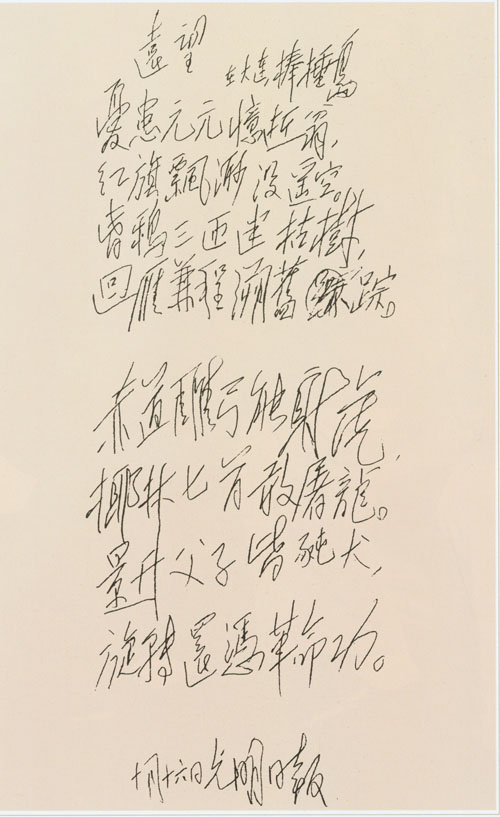 遠望 在大連棒捶島
憂患元元憶逝翁,
红旗飄渺没遥空。
昏鴉三匝迷枯樹,
回雁兼程溯舊踪。
赤道雕弓能射虎,
椰林匕首敢屠龍。
景升父子皆豚犬,
旋轉還憑革命功。
十月十六日光明日報